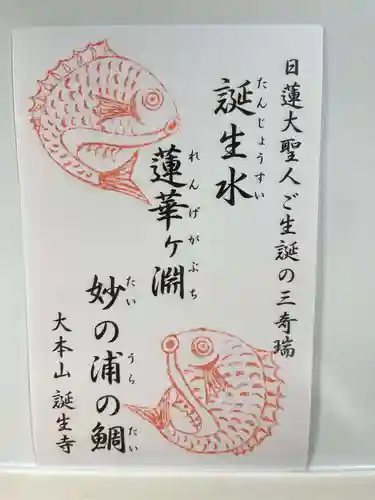 日蓮大聖人ご生誕の三奇瑞
誕生水
たんじょうすい
蓮華ヶ淵
れんげがぶち
妙の浦の鯛
たい うら たい
大本山 誕生寺